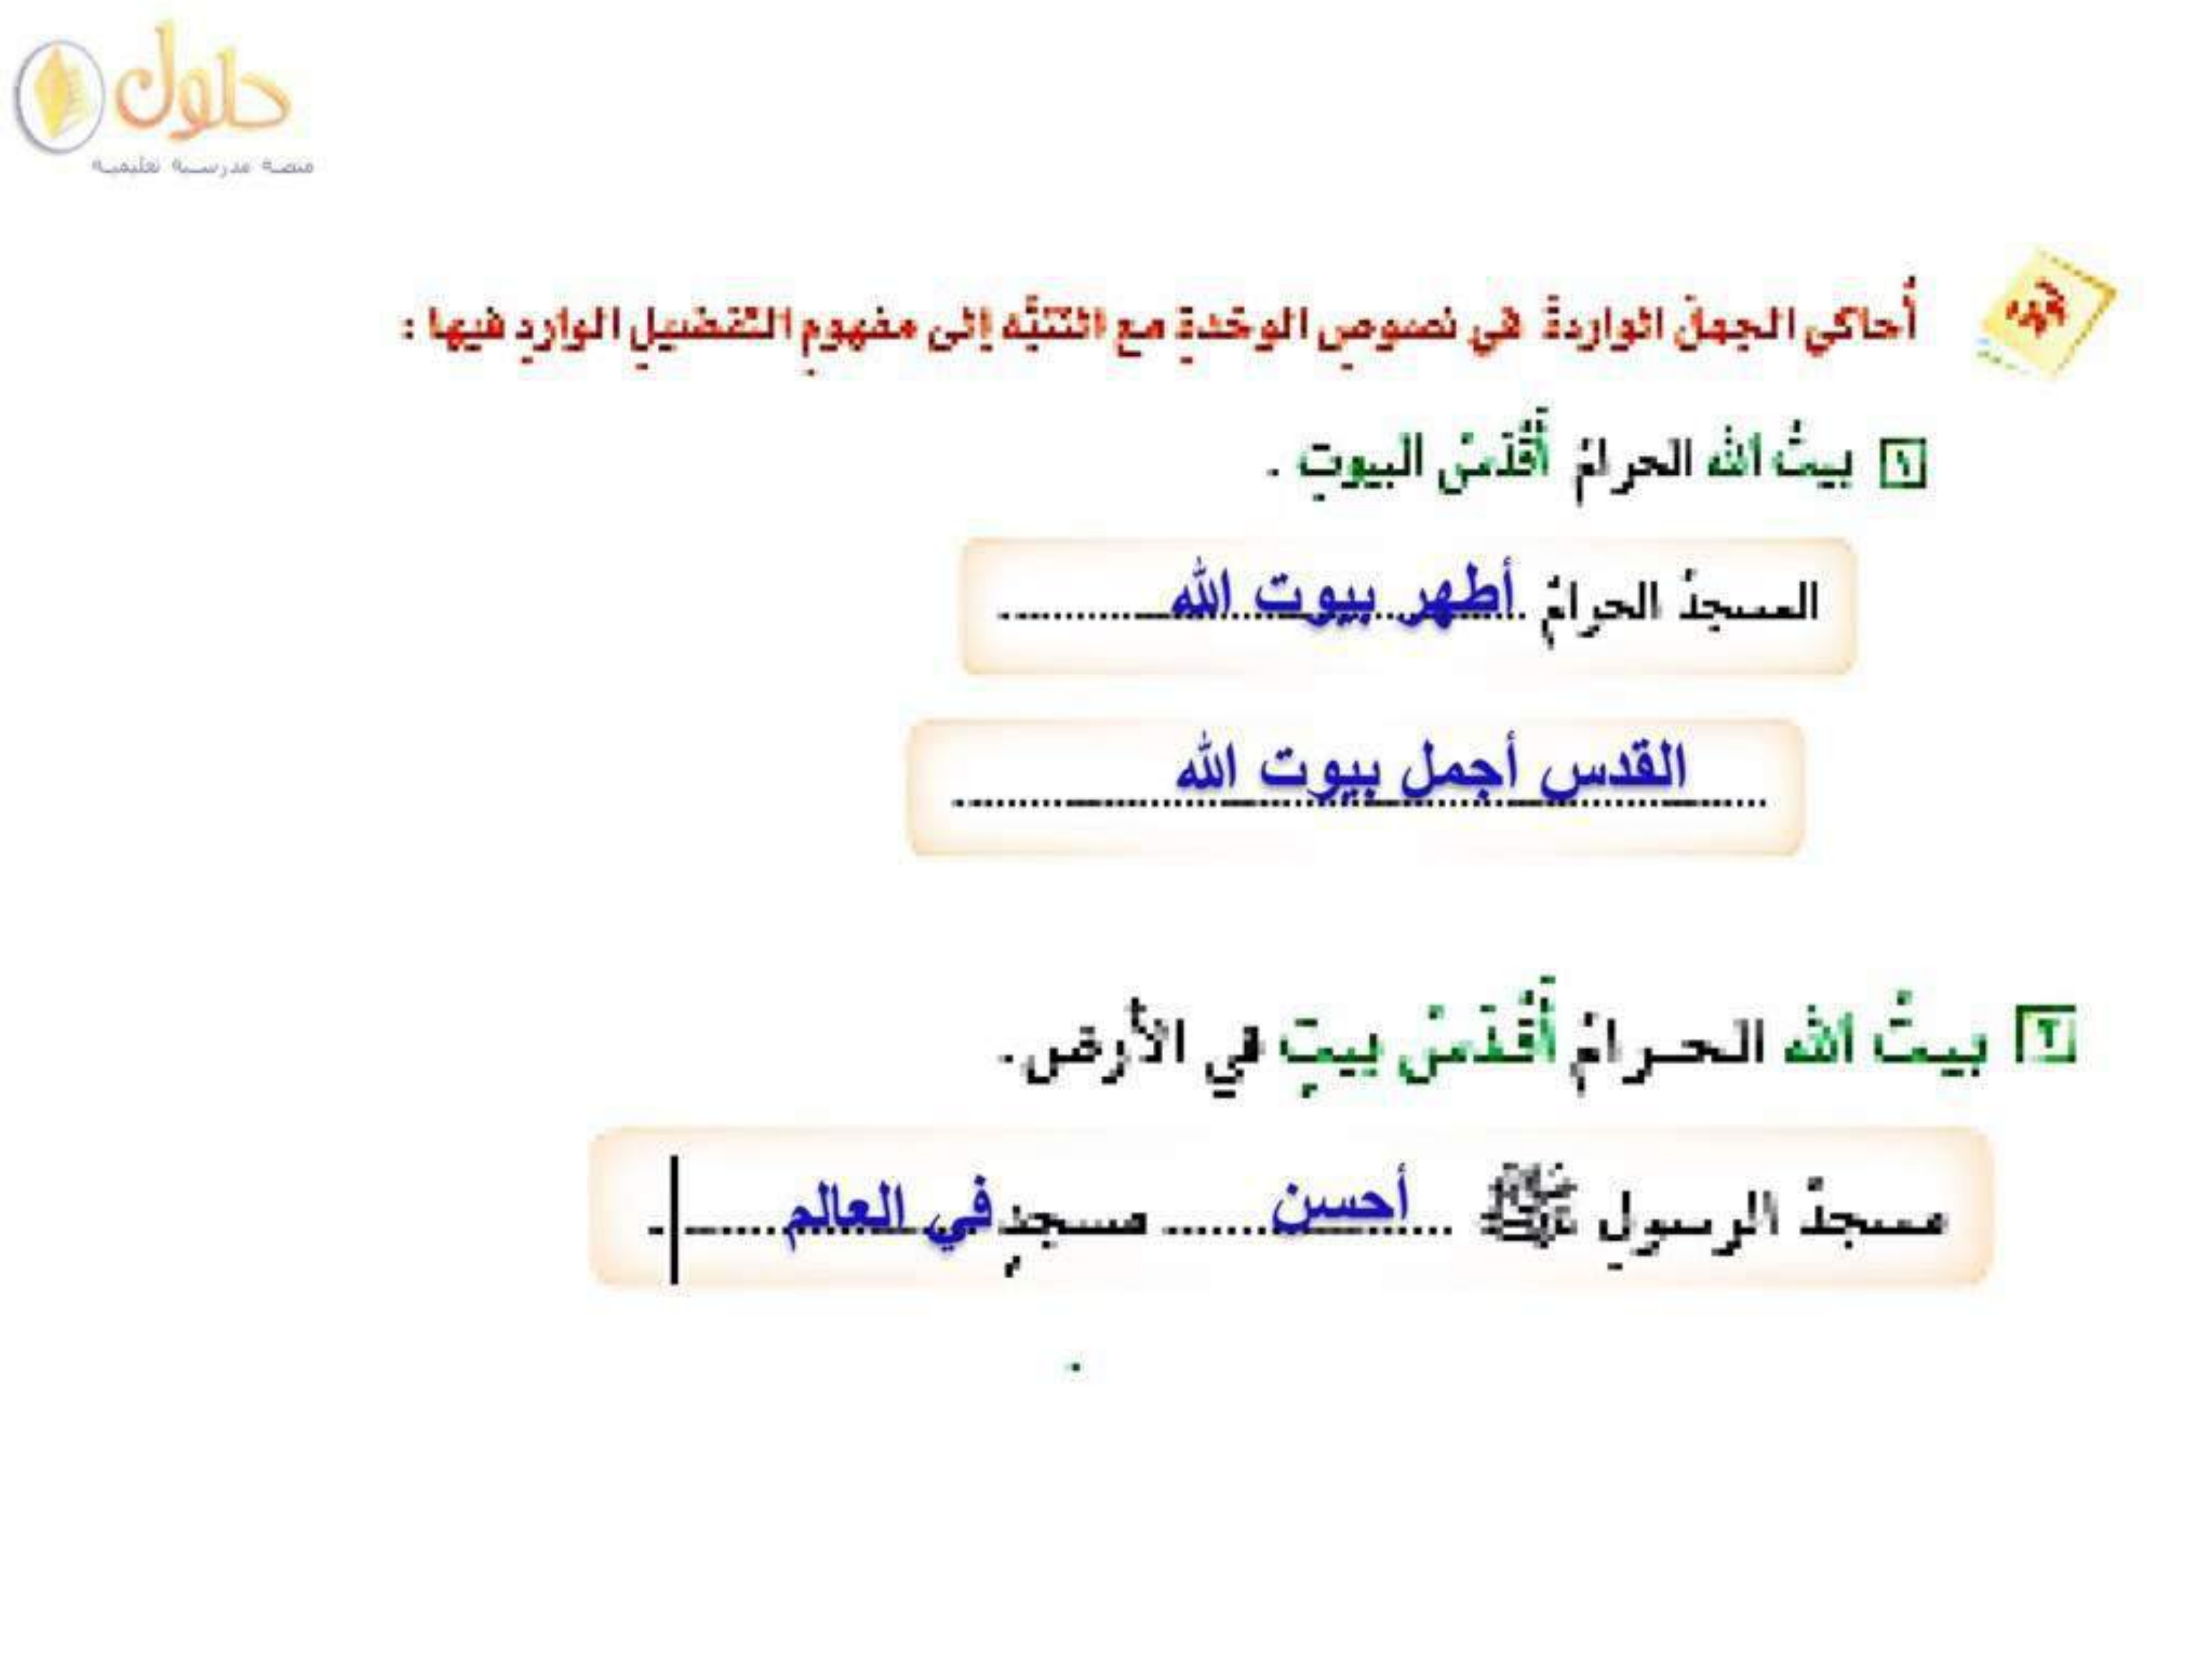 حلول
منصة مدرسية تعليمية
أُحاكي الجملَ الواردةَ في نصوصِ الوحْدةِ مع التنبُّه إلى مفهومِ التفضيلِ الواردِ فيها :
١ بيتُ الله الحرامُ أقْدَسُ البيوتِ .
المسجدُ الحرامُ أطهر بيوت الله
القدس أجمل بيوت الله
٢ بيتُ الله الحرامُ أقْدَسُ بيتٍ في الأرضِ.
مسجدُ الرسولِ ﷺ أحسن مسجدٍ في العالم .